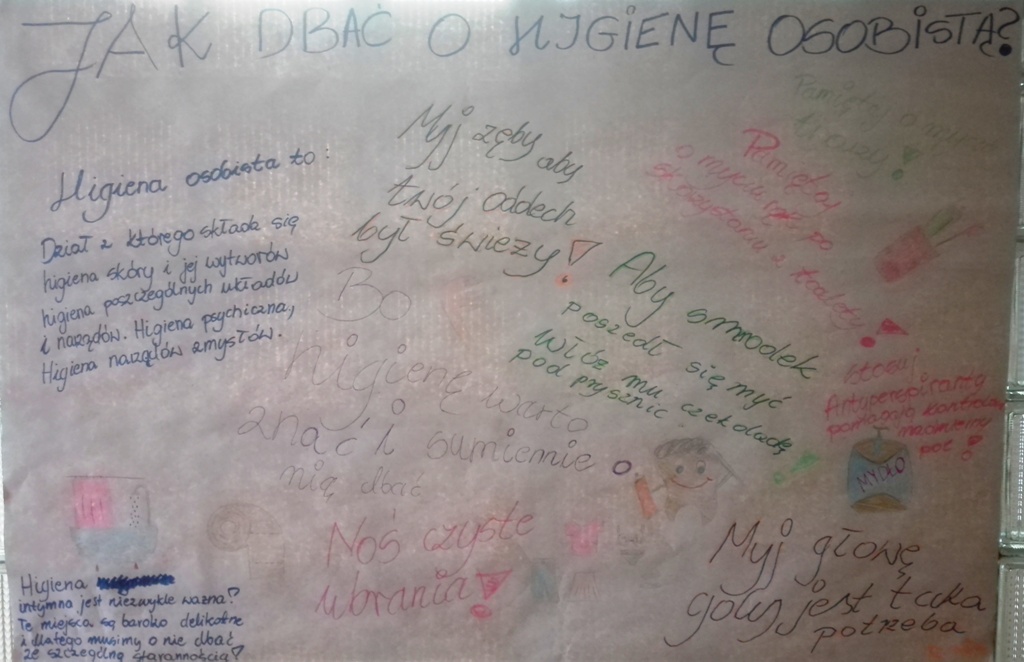 JAK DBAĆ O HIGIENĘ OSOBISTĄ?
Higiena osobista to:
Dział z którego składa się
higiena skóry i jej wytworów
higiena poszczególnych układów
i narządów. Higiena psychiczna,
Higiena narządów zmysłów.
Myj zęby aby
twój oddech
był świeży!
Pamiętaj o
uszy!
Pamiętaj
o myciu rąk po
skorzystaniu z toalety!
Aby smrodek
poszedł się myć
Włóż mu czekoladkę
pod prysznic
Bo
higienę warto
znać i sumiennie o
nią dbać
Stosuj
Antyperspiranty
pomagają kontrolować
pot!
MYDŁO
Noś czyste
ubrania!
Myj głowę
gdy jest taka
potrzeba
Higiena
intymna jest niezwykle ważna!
Te miejsca są baroko delikatne
i dlatego musimy o nie dbać
ze szczególną starannością!